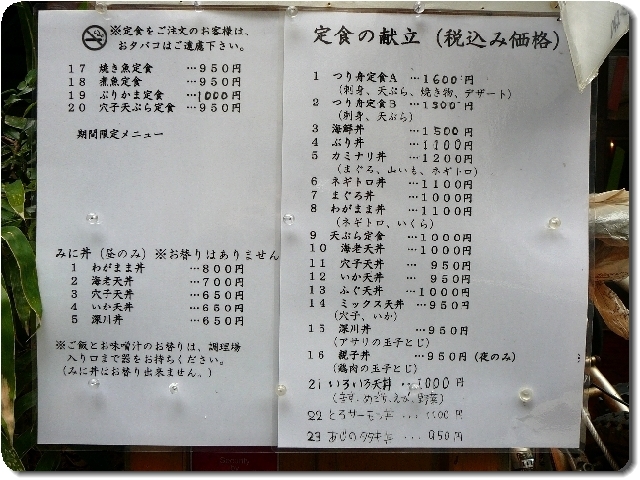 ※定食をご注文のお客様は、
おタバコはご遠慮下さい。
17 焼き魚定食 …950円
18 煮魚定食 …950円
19 ぶりかま定食 …1000円
20 穴子天ぷら定食 …950円
期間限定メニュー
みに丼（昼のみ）※お替りはありません
1 わがまま丼 …800円
2 海老天丼 …700円
3 穴子天丼 …650円
4 いか天丼 …650円
5 深川丼 …650円
※ご飯とお味噌汁のお替りは、調理場
入り口まで器をお持ちください。
（みに丼はお替り出来ません。）
定食の献立（税込み価格）
1 つり舟定食A …1600円
（刺身、天ぷら、焼き物、デザート）
2 つり舟定食B …1300円
（刺身、天ぷら）
3 海鮮丼 …1500円
4 ぶり丼 …1100円
5 カミナリ丼 …1200円
（まぐろ、山いも、ネギトロ）
6 ネギトロ丼 …1100円
7 まぐろ丼 …1000円
8 わがまま丼 …1100円
（ネギトロ、いくら）
9 天ぷら定食 …1000円
10 海老天丼 …1000円
11 穴子天丼 …950円
12 いか天丼 …950円
13 ふぐ天丼 …1000円
14 ミックス天丼 …950円
（穴子、いか）
15 深川丼 …950円
（アサリの玉子とじ）
16 親子丼 …950円（夜のみ）
（鶏肉の玉子とじ）
21 いろいろ天丼 …1000円
22 とろサーモン丼 …1100円
23 あじのタタキ丼 …950円